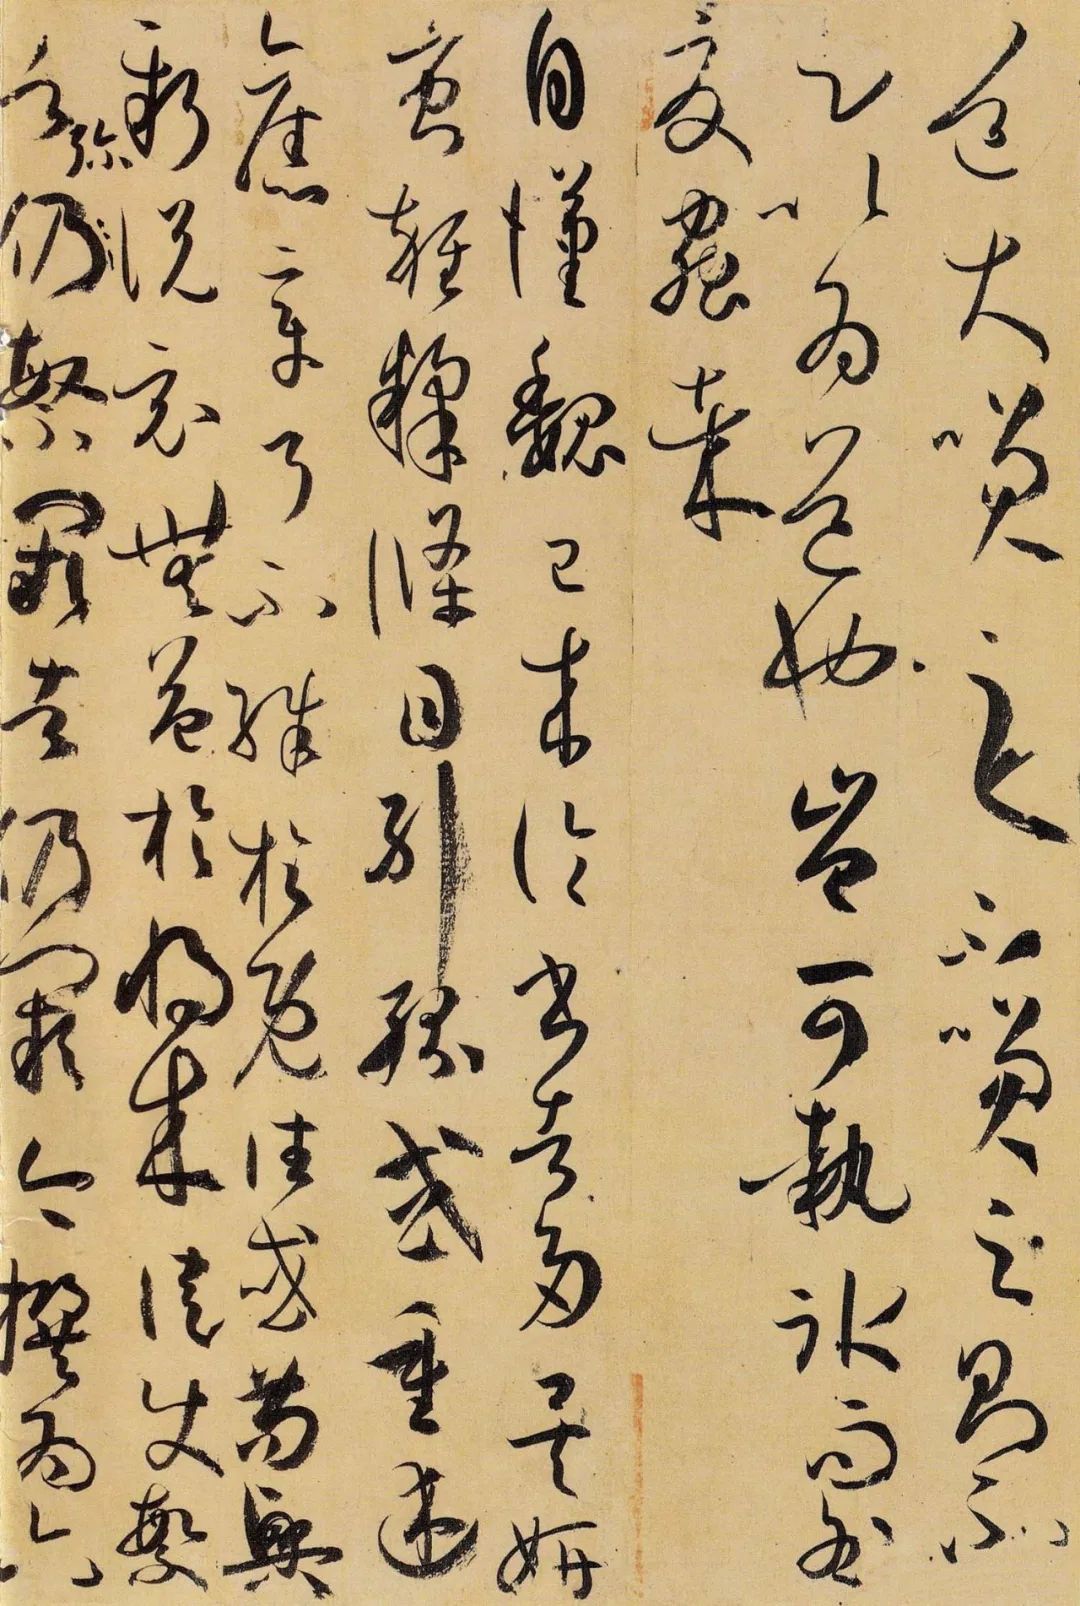 道大笑之不笑之則不
足以為道也豈可執冰而咎
夏蟲哉
自漢魏已來論書者多矣妍
蚩雜糅條目糾紛或重述
舊章了不殊於既往或苟興
新說竟無益於將來徒使繁
者彌仍繁闕者仍闕今撰為六